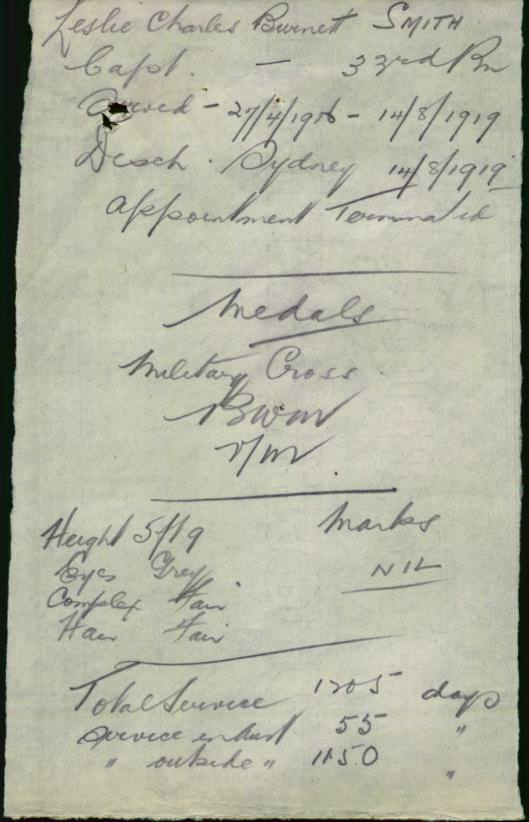 Leslie Charles Burnett SMITH
Capt. — 33rd Bn
Served - 27/4/1916 - 14/8/1919
Disch. Sydney 14/8/1919
Appointment Terminated
Medals
Military Cross
BWM
V/M.
Height 5/19 Marks
Eyes Grey NIL
Complex Fair
Hair Fair
Total Service 1205 days
Service in Aust 55 "
" outside " 1150 "